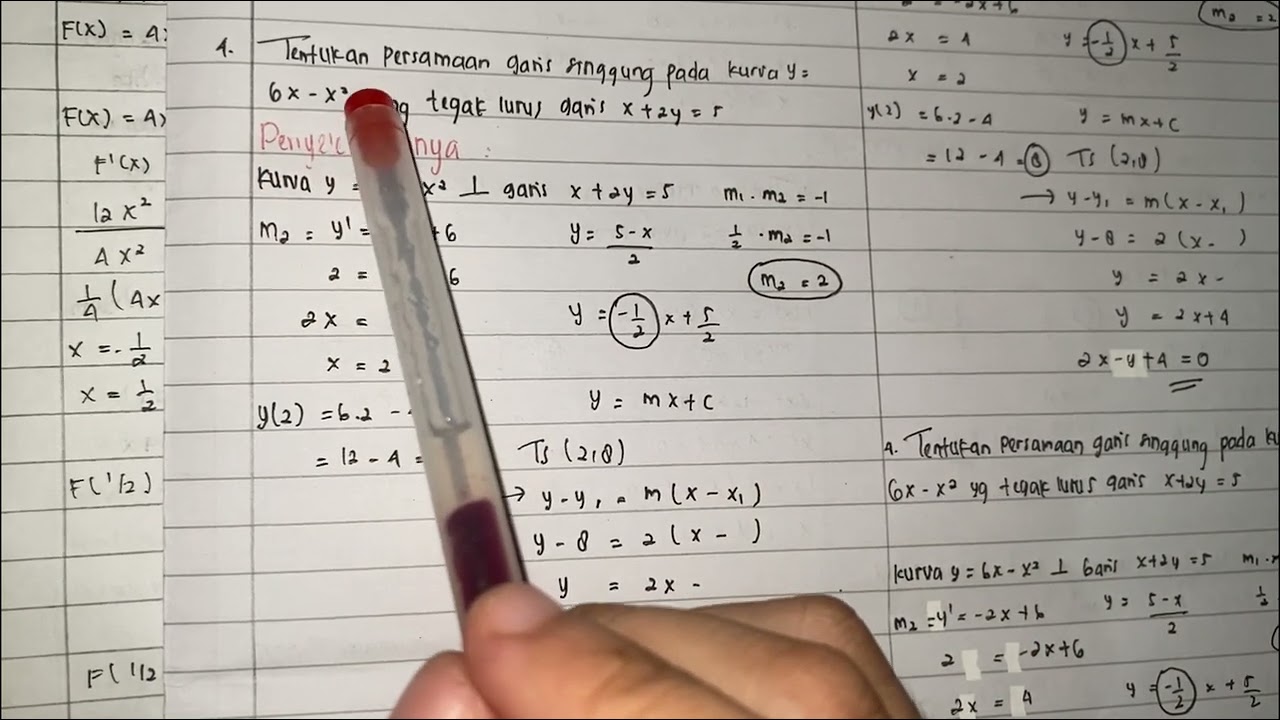 F(x) = 4
F(x) = 4x
F'(x)
12x²
4x²
1/4 (4x
x = -1/2
x = 1/2
F(1/2)
F(1/2
4. Tentukan persamaan garis singgung pada kurva y =
6x - x² tegak lurus garis x + 2y = 5
nya :
Kurva y = x² ⊥ garis x + 2y = 5 m₁ . m₂ = -1
m₂ = y' = +6 y = 5-x/2 1/2 . m₂ = -1
2 = 6 m₂ = 2
2x = y = -1/2 x + 5/2
x = 2
y(2) = 6.2 - y = mx + c
= 12 - 4 = Ts (2,8)
→ y - y₁ = m(x - x₁)
y - 8 = 2(x - )
y = 2x -
-2x+6 m₂ = 2
2x = 4 y = -1/2 x + 5/2
x = 2
y(2) = 6.2 - 4 y = mx + c
= 12 - 4 = 8 Ts (2,8)
→ y - y₁ = m(x - x₁)
y - 8 = 2(x - )
y = 2x -
y = 2x+4
2x - y + 4 = 0
4. Tentukan persamaan garis singgung pada ku
6x - x² yg tegak lurus garis x+2y = 5
kurva y = 6x - x² ⊥ garis x+2y = 5 m₁ .
m₂ = y' = -2x+6 y = 5-x/2 1/2
2 = -2x+6
2x = 4 y = -1/2 x + 5/2